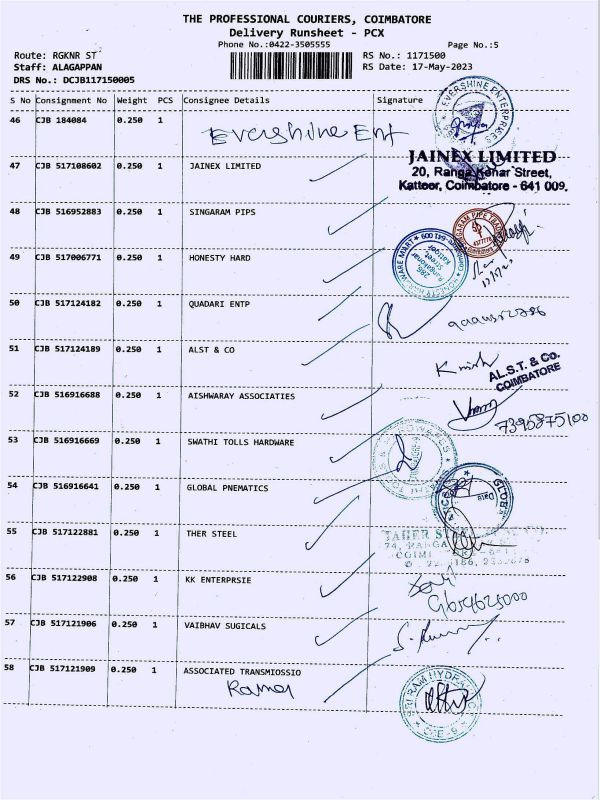 THE PROFESSIONAL COURIERS, COIMBATORE
Delivery Runsheet - PCX
Phone No.:0422-3505555 Page No.:5
Route: RGKNR ST RS No.: 1171500
Staff: ALAGAPPAN RS Date: 17-May-2023
DRS No.: DCJB117150005
S No Consignment No Weight PCS Consignee Details Signature
46 CJB 184084 0.250 1
Evershine Ent
EVERSHINE ENTERPRISES
47 CJB 517108602 0.250 1 JAINEX LIMITED
JAINEX LIMITED
20, Ranga Konar Street,
Kattoor, Coimbatore - 641 009.
48 CJB 516952883 0.250 1 SINGARAM PIPS
49 CJB 517006771 0.250 1 HONESTY HARD
286
Ranganonar
Street
Kattoor
50 CJB 517124182 0.250 1 QUADARI ENTP
51 CJB 517124189 0.250 1 ALST & CO
AL.S.T. & Co.
COIMBATORE
52 CJB 516916688 0.250 1 AISHWARAY ASSOCIATIES
7395875100
53 CJB 516916669 0.250 1 SWATHI TOLLS HARDWARE
54 CJB 516916641 0.250 1 GLOBAL PNEMATICS
55 CJB 517122881 0.250 1 THER STEEL
56 CJB 517122908 0.250 1 KK ENTERPRSIE
57 CJB 517121906 0.250 1 VAIBHAV SUGICALS
58 CJB 517121909 0.250 1 ASSOCIATED TRANSMIOSSIO